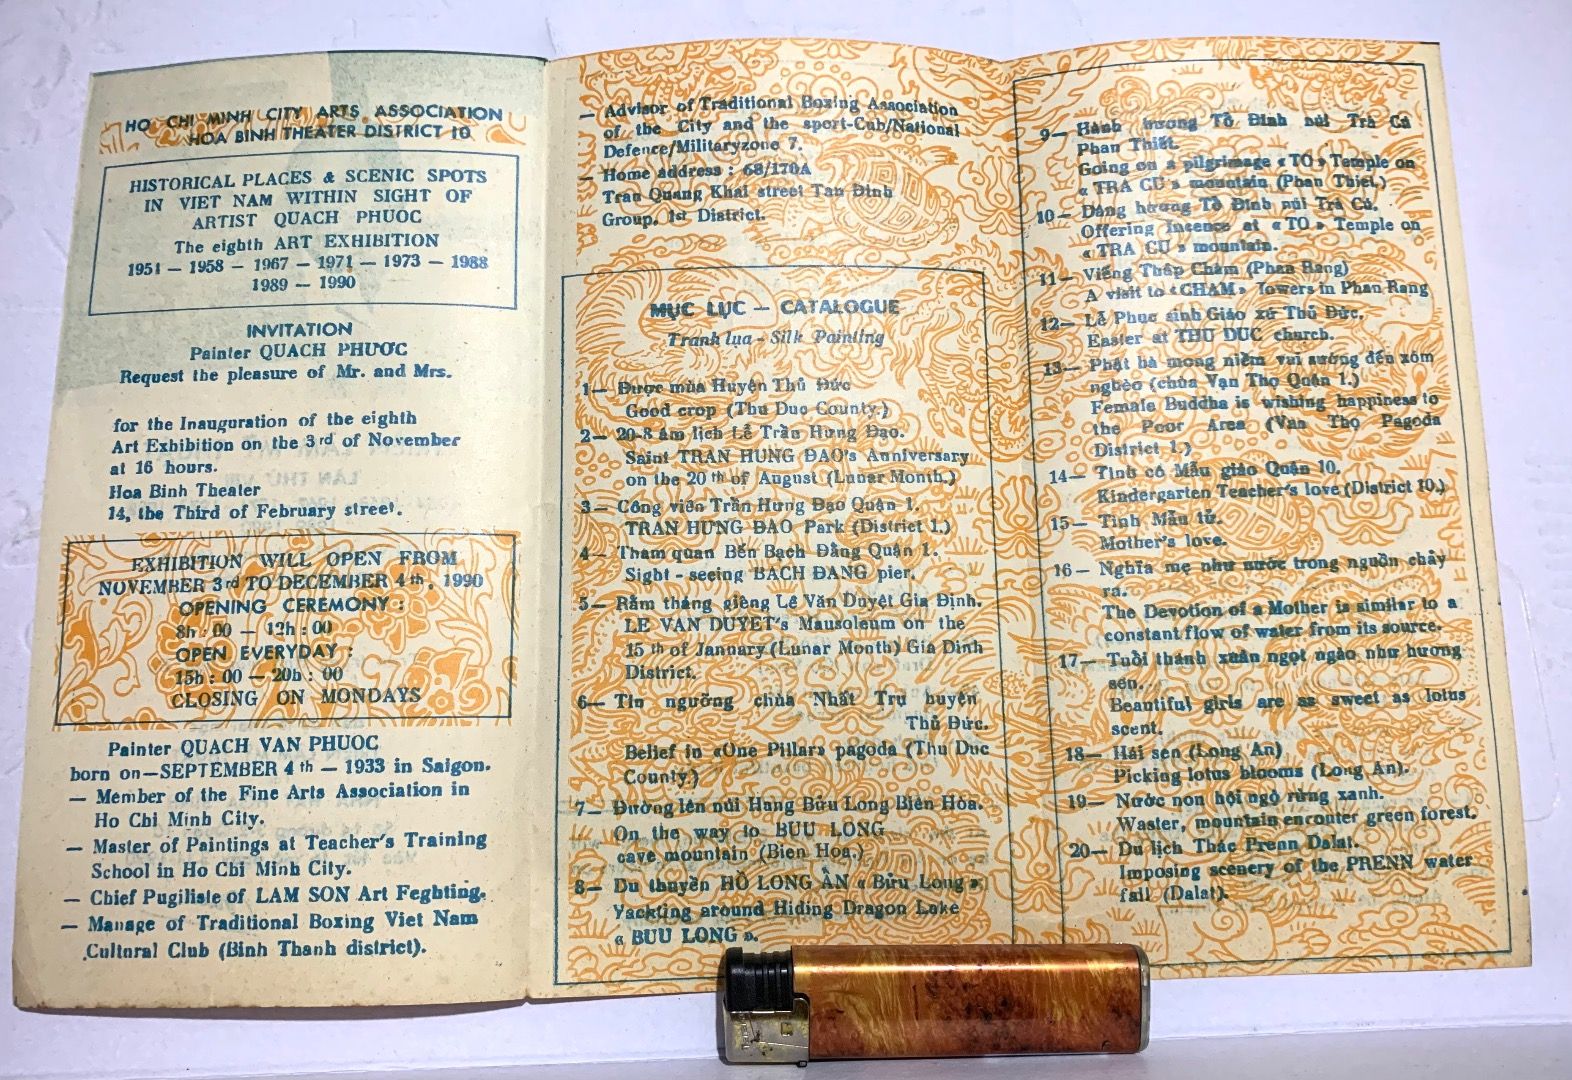 HO CHI MINH CITY ARTS ASSOCIATION
HOA BINH THEATER DISTRICT 10
HISTORICAL PLACES & SCENIC SPOTS
IN VIET NAM WITHIN SIGHT OF
ARTIST QUACH PHUOC
The eighth ART EXHIBITION
1951 — 1958 — 1967 — 1971 — 1973 — 1988
1989 — 1990
INVITATION
Painter QUACH PHƯỚC
Request the pleasure of Mr. and Mrs.
for the Inauguration of the eighth
Art Exhibition on the 3rd of November
at 16 hours.
Hoa Binh Theater
14, the Third of February street.
EXHIBITION WILL OPEN FROM
NOVEMBER 3rd TO DECEMBER 4th, 1990
OPENING CEREMONY :
8h : 00 — 12h : 00
OPEN EVERYDAY :
15h : 00 — 20h : 00
CLOSING ON MONDAYS
Painter QUACH VAN PHUOC
born on—SEPTEMBER 4th — 1933 in Saigon.
— Member of the Fine Arts Association in
Ho Chi Minh City.
— Master of Paintings at Teacher's Training
School in Ho Chi Minh City.
— Chief Pugiliste of LAM SON Art Feghting.
— Manage of Traditional Boxing Viet Nam
Cultural Club (Binh Thanh district).
— Advisor of Traditional Boxing Association
of the City and the sport-Cub/National
Defence/Militaryzone 7.
— Home address : 68/170A
Tran Quang Khai street Tan Đinh
Group, 1st District.
MỤC LỤC — CATALOGUE
Tranh lụa - Silk Painting
1— Được mùa Huyện Thủ Đức
Good crop (Thu Duc County.)
2— 20-8 âm lịch Lễ Trần Hưng Đạo.
Saint TRAN HUNG ĐAO's Anniversary
on the 20th of August (Lunar Month.)
3— Công viên Trần Hưng Đạo Quận 1.
TRAN HUNG ĐAO Park (District 1.)
4— Tham quan Bến Bạch Đằng Quận 1.
Sight - seeing BACH ĐANG pier.
5— Rằm tháng giêng Lê Văn Duyệt Gia Định.
LE VAN DUYET's Mausoleum on the
15th of January (Lunar Month) Gia Dinh
District.
6— Tín ngưỡng chùa Nhất Trụ huyện
Thủ Đức.
Belief in «One Pillar» pagoda (Thu Duc
County.)
7— Đường lên núi Hang Bửu Long Biên Hòa.
On the way to BUU LONG
cave mountain (Bien Hoa.)
8— Du thuyền HỒ LONG ẨN « Bửu Long ».
Yackting around Hiding Dragon Lake
« BUU LONG ».
9— Hành hương Tổ Đình núi Trà Cú
Phan Thiết.
Going on a pilgrimage « TO » Temple on
« TRA CU » mountain (Phan Thiet.)
10— Dâng hương Tổ Đình núi Trà Cú.
Offering Incence at « TO » Temple on
« TRA CU » mountain.
11— Viếng Tháp Chàm (Phan Rang)
A visit to «CHAM» Towers in Phan Rang
12— Lễ Phục sinh Giáo xứ Thủ Đức.
Easter at THU DUC church.
13— Phật bà mong niềm vui sướng đến xóm
nghèo (chùa Vạn Thọ Quận 1.)
Female Buddha is wishing happiness to
the Poor Area (Van Thọ Pagoda
District 1.)
14— Tình cô Mẫu giáo Quận 10.
Kindergarten Teacher's love (District 10.)
15— Tình Mẫu tử.
Mother's love.
16— Nghĩa mẹ như nước trong nguồn chảy
ra.
The Devotion of a Mother is similar to a
constant flow of water from its source.
17— Tuổi thanh xuân ngọt ngào như hương
sen.
Beautiful girls are as sweet as lotus
scent.
18— Hái sen (Long An)
Picking lotus blooms (Long An).
19— Nước non hội ngộ rừng xanh.
Waster, mountain enconter green forest.
20— Du lịch Thác Prenn Dalat.
Imposing scenery of the PRENN water
fall (Dalat).